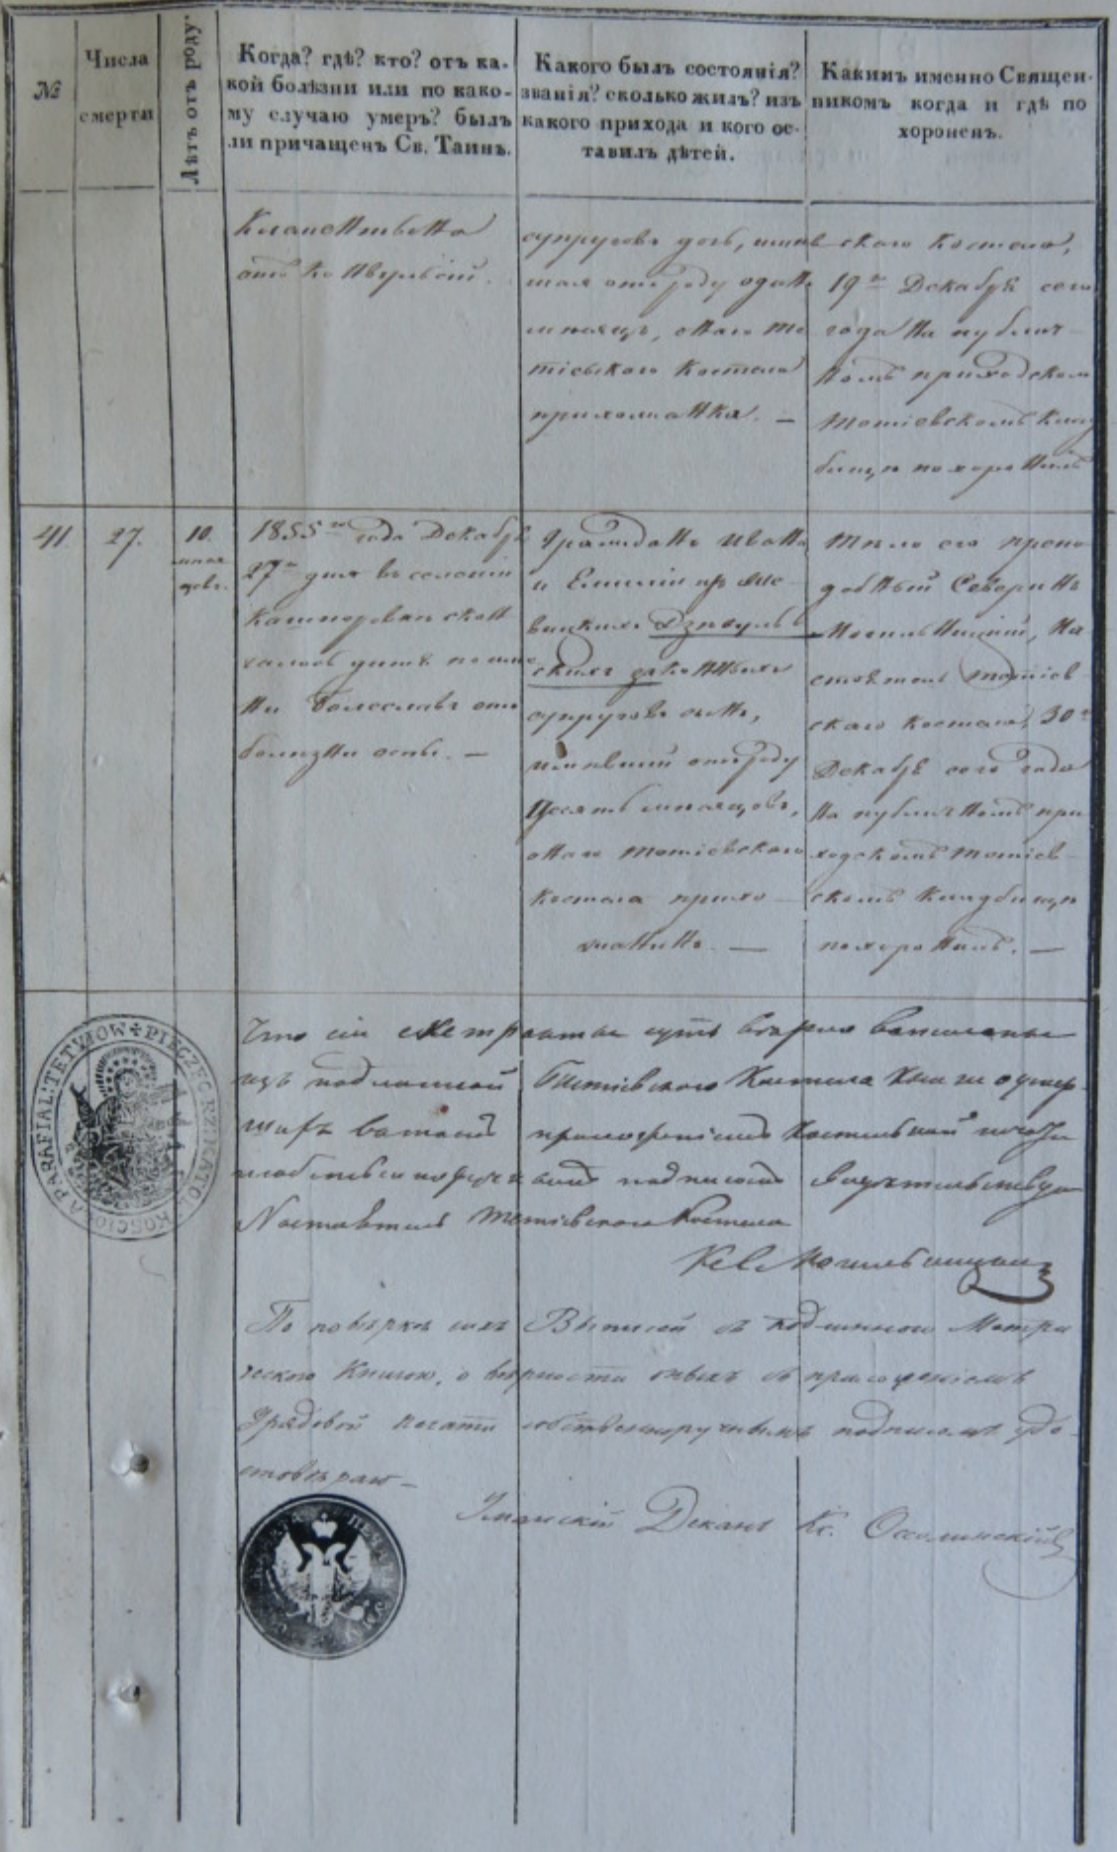 №
Числа
смерти
Лѣтъ отъ роду.
Когда? гдѣ? кто? отъ ка-
кой болѣзни или по како-
му случаю умеръ? былъ
ли причащенъ Св. Таинъ.
Какого былъ состоянія?
званія? сколько жилъ? изъ
какого прихода и кого ос-
тавилъ дѣтей.
Какимъ именно Священ-
никомъ когда и гдѣ по
хороненъ.
отъ
супруговъ дочь,
шая отъ роду одинъ
мѣсяцъ, онаго те
тіевского костела
прихожанка. —
скаго костела,
19го Декабря сего
года на публич-
номъ приходскомъ
тетіевскомъ клад
бищѣ похоронилъ
41.
27.
10.
мѣся
цевъ.
1855го года Декабря
27го дня въ селеніи
дитя по име
ни Болеславъ отъ
болезни оспы. —
Гражданъ Ивана
и Емиліи
Дзѣвуль
скихъ законныхъ
супруговъ сынъ,
имѣвшій отъ роду
Десять мѣсяцовъ,
онаго тетіевского
костела прихо-
жанинъ. —
Тѣло его препо-
добный Северинъ
Могильницкій, На
стоятель тетіев-
скаго костела, 30го
Декабря сего года
на публичномъ при
ходскомъ тетіев-
скомъ кладбищѣ
похоронилъ. —
Что сіи суть вѣрно
изъ подлинной Тетіевского Костела Книги о умер-
шихъ въ томъ приложеніемъ Костельной печати
подписомъ Свидетельствую
Настоятель Тетіевского Костела
К. С. Могильницкій
По повѣркѣ сихъ Выписей съ подлинною Метри
ческою Книгою, о вѣрности оныхъ съ приложеніемъ
Урядовой печати собственноручнымъ подписомъ удо-
стовѣряю —
Уманскій Деканъ Кс. Оссолинскій
PIECZĘC RZ. KATOL. KOSCIOŁA PARAFIAL: TETYIOW